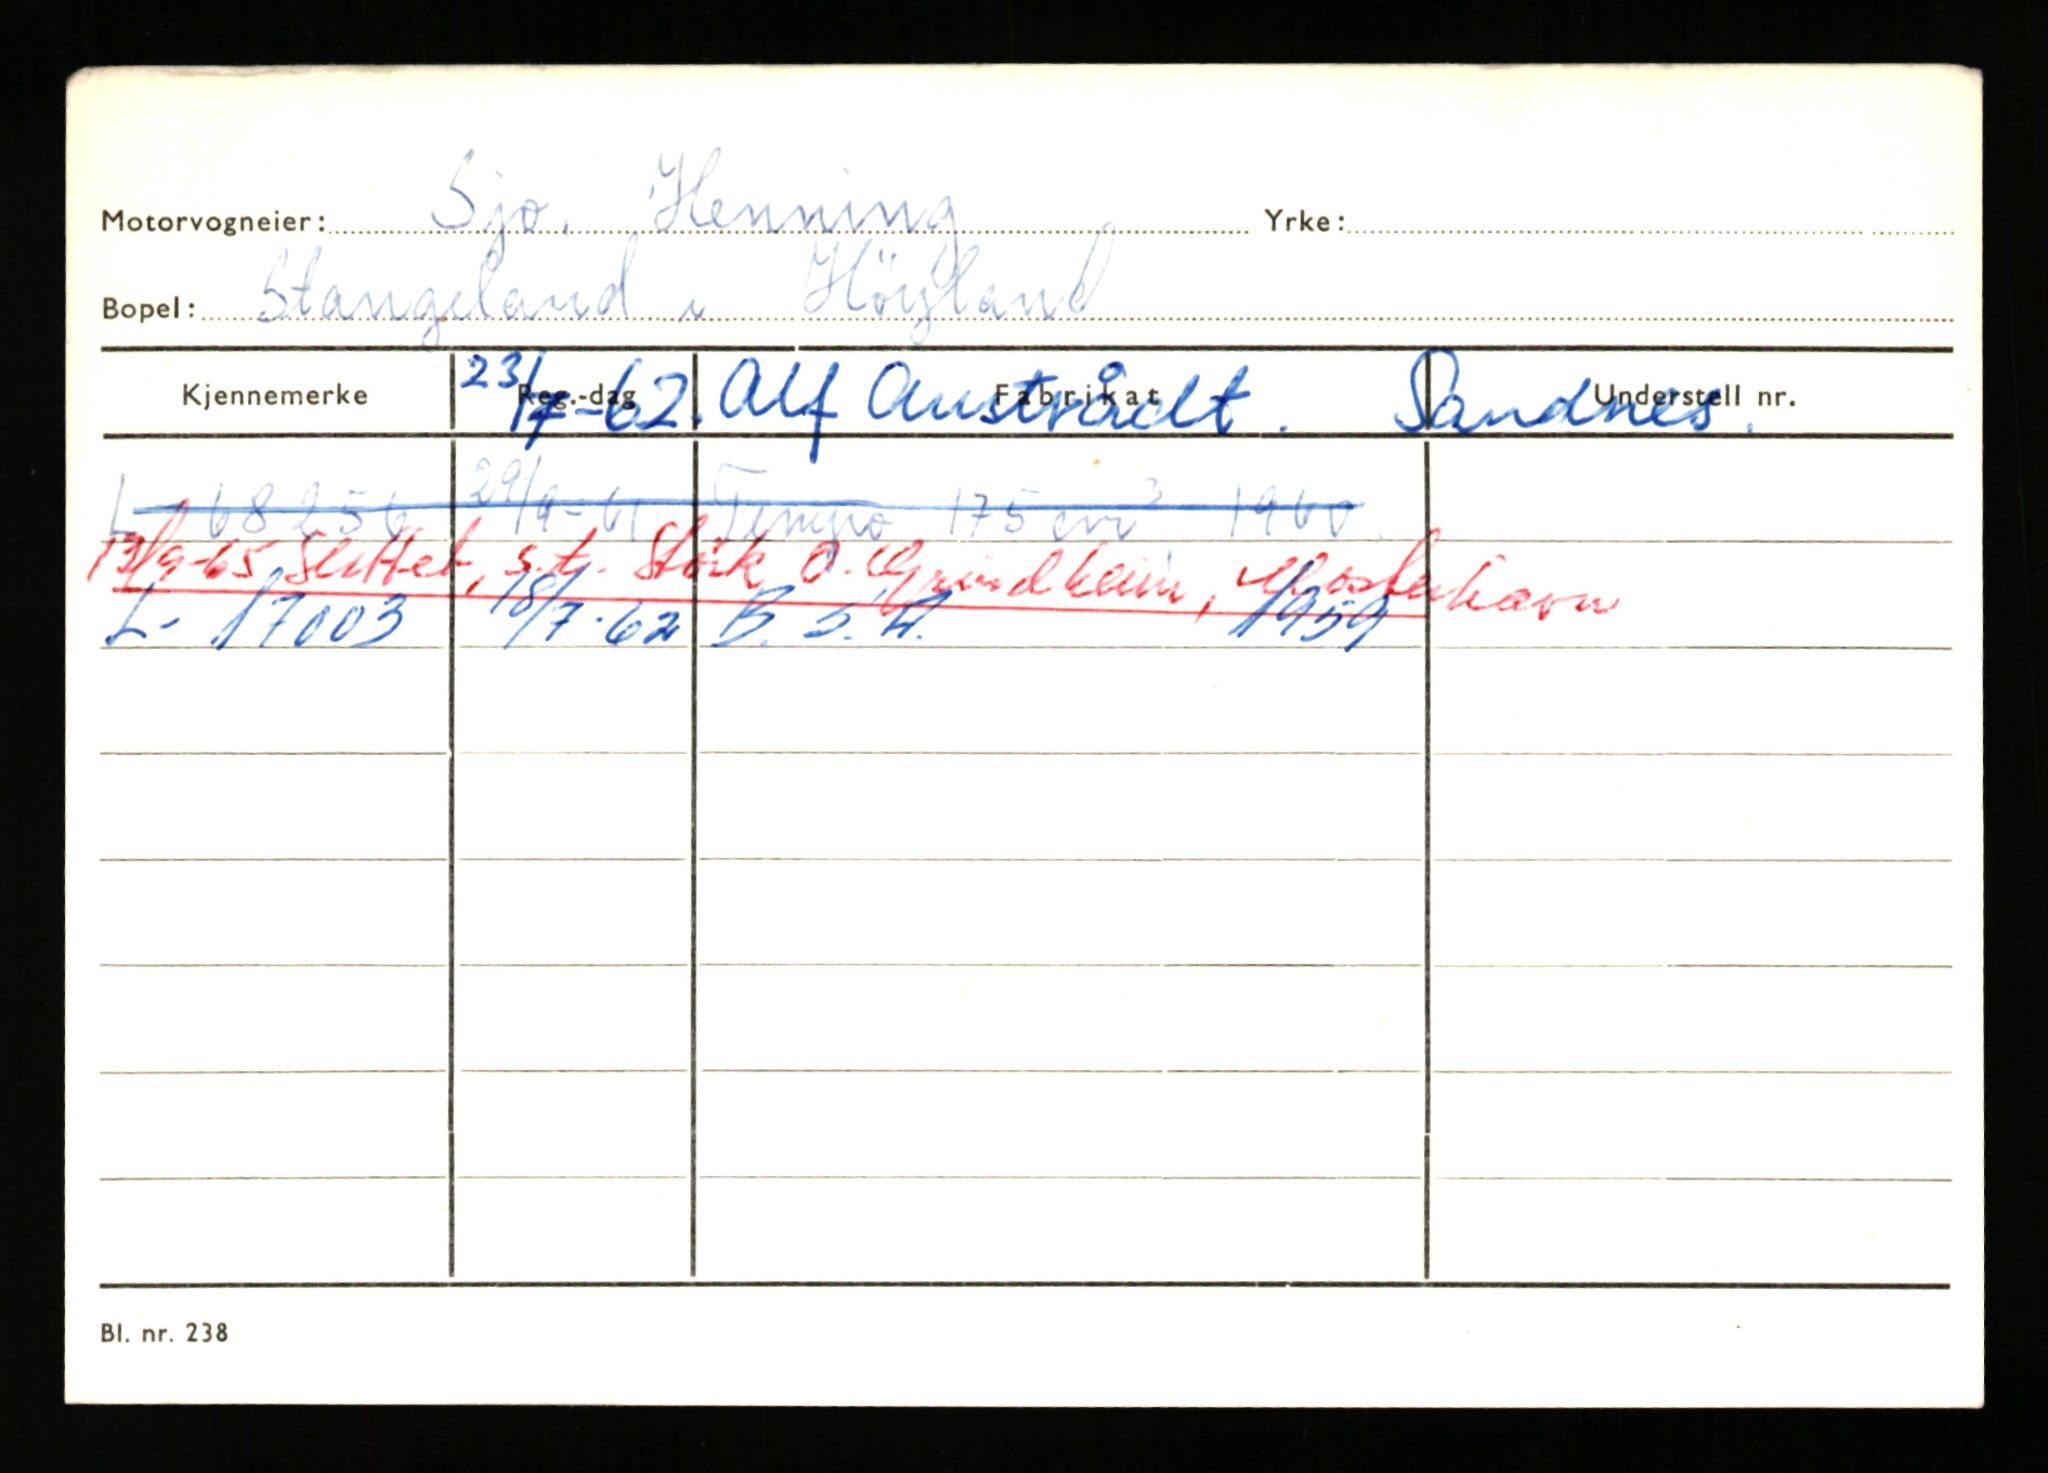 Motorvogneier: Sjo, Henning Yrke:
Bopel: Stangeland i Höyland
23/7-62. Alf Austrådt. Sandnes.
Kjennemerke Reg.-dag Fabrikat Understell nr.
L- 68256 29/9-61 Tempo 175 cm³ 1960.
13/9-65 Slettet, s.t. O. Grindheim, Mosterhavn
L- 17003 18/7-62 B. S. A. 1959
Bl. nr. 238